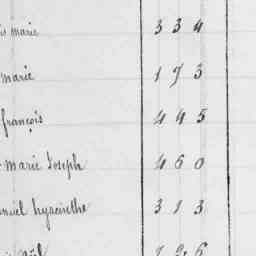 marie 334
marie 173
françois 445
marie Joseph 460
hyacinthe 313